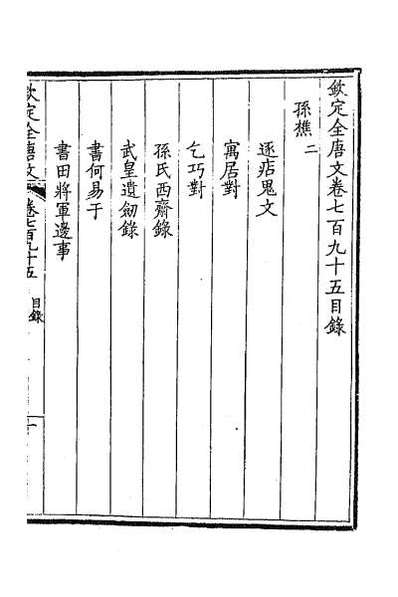 欽定全唐文卷七百九十五目錄
孫樵 二
逐痁鬼文
寓居對
乞巧對
孫氏西齋錄
武皇遺劒錄
書何易于
書田將軍邊事
欽定全唐文 卷七百九十五 目錄 一